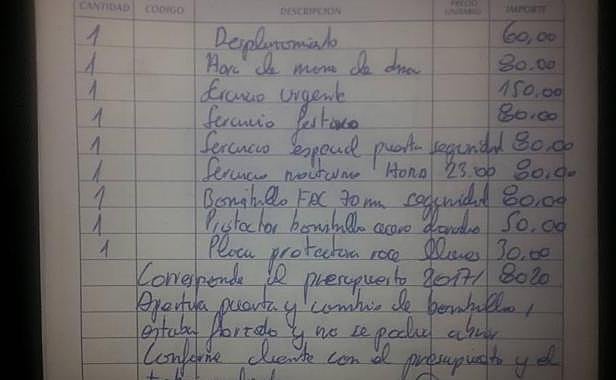 CANTIDAD CODIGO DESCRIPCIÓN PRECIO UNITARIO IMPORTE
1 Desplazamiento 60,00
1 Hora de mano de obra 80.00
1 Servicio Urgente 150.00
1 Servicio festivo 80.00
1 Servicio especial puerta seguridad 80.00
1 Servicio nocturno Hora 23.00 80,00
1 Bombillo FAC 70mm seguridad 80.00
1 Protector bombillo acero dorado 50.00
1 Placa protectora roce llaves 30,00
Corresponde al presupuesto 2017/8020
Apertura puerta y cambio de bombillo,
estaba forzado y no se podia abrir
Conforme cliente con el presupuesto y el